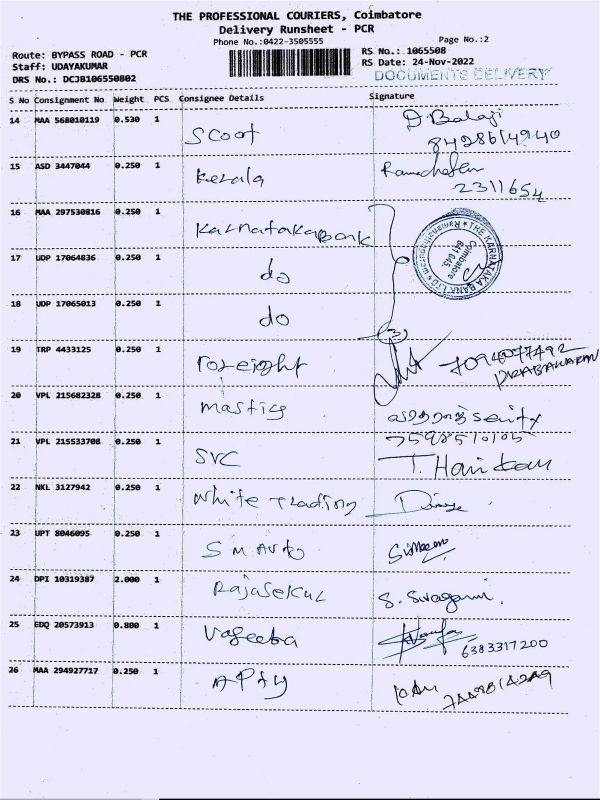 THE PROFESSIONAL COURIERS, Coimbatore
Delivery Runsheet - PCR
Phone No.:0422-3505555
Page No.:2
Route: BYPASS ROAD - PCR
RS No.: 1065508
Staff: UDAYAKUMAR
RS Date: 24-Nov-2022
DRS No.: DCJB106550802
DOCUMENTS DELIVERY
S No Consignment No Weight PCS Consignee Details Signature
14 MAA 568010119 0.530 1 Scoot D Balaji
8428614940
15 ASD 3447044 0.250 1 Kerala
2311654
16 MAA 297530816 0.250 1 Karnataka Bank
THE KARNATAKA BANK LTD
Coimbatore
641 045.
17 UDP 17064836 0.250 1 do
18 UDP 17065013 0.250 1 do
(3)
19 TRP 4433125 0.250 1 7094077492
PRABAKARAN
20 VPL 215682328 0.250 1
21 VPL 215533708 0.250 1 SVC
22 NKL 3127942 0.250 1 White Trading
23 UPT 8046095 0.250 1 SM Auto
24 DPI 10319387 2.000 1 Rajasekur
25 EDQ 20573913 0.800 1 6383317200
26 MAA 294927717 0.250 1